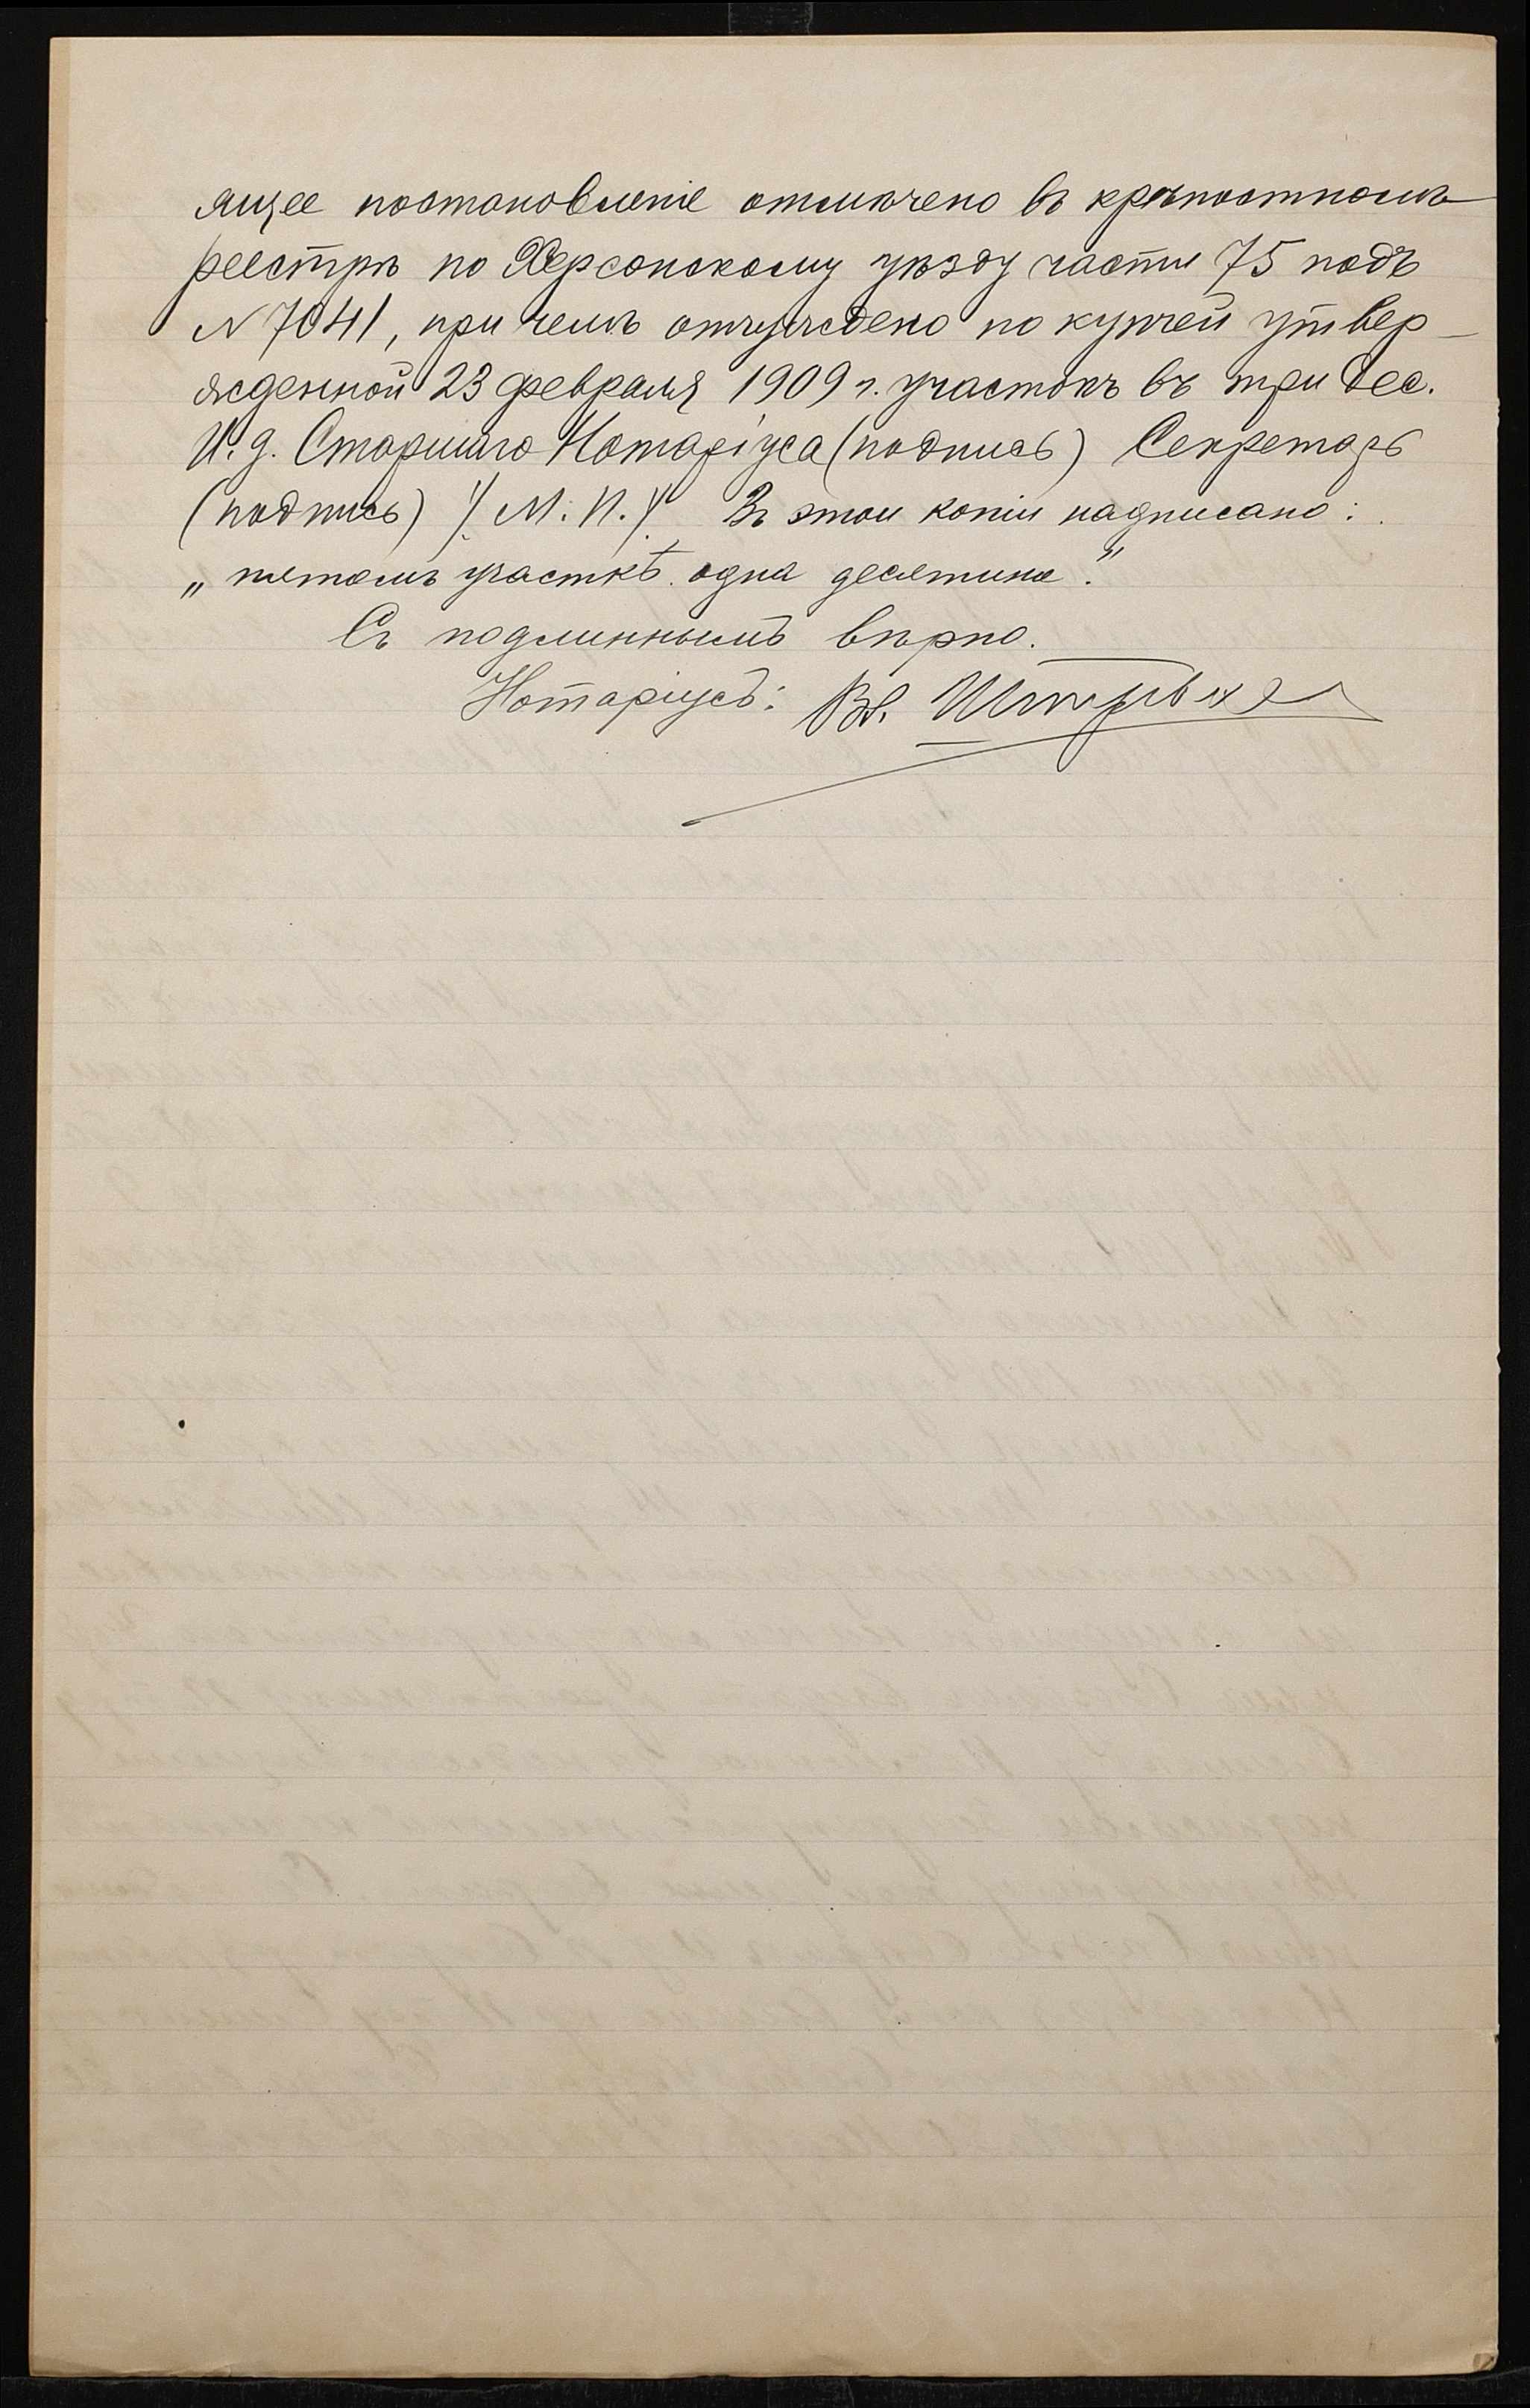 ящее постановленіе отмѣчено въ крѣпостномъ
реестрѣ по Херсонскому уѣзду части 75 подъ
N 7041, при чемъ отчуждено по купчей утвер-
жденной 23 февраля 1909 г. участокъ въ три дес.
И. д. Старшаго Нотаріуса (подпись) Секретарь
(подпись) /М. П./ Въ этой копіи надписано:
„пятомъ участкѣ одна десятина."
Съ подлиннымъ вѣрно.
Нотаріусъ: Вл.